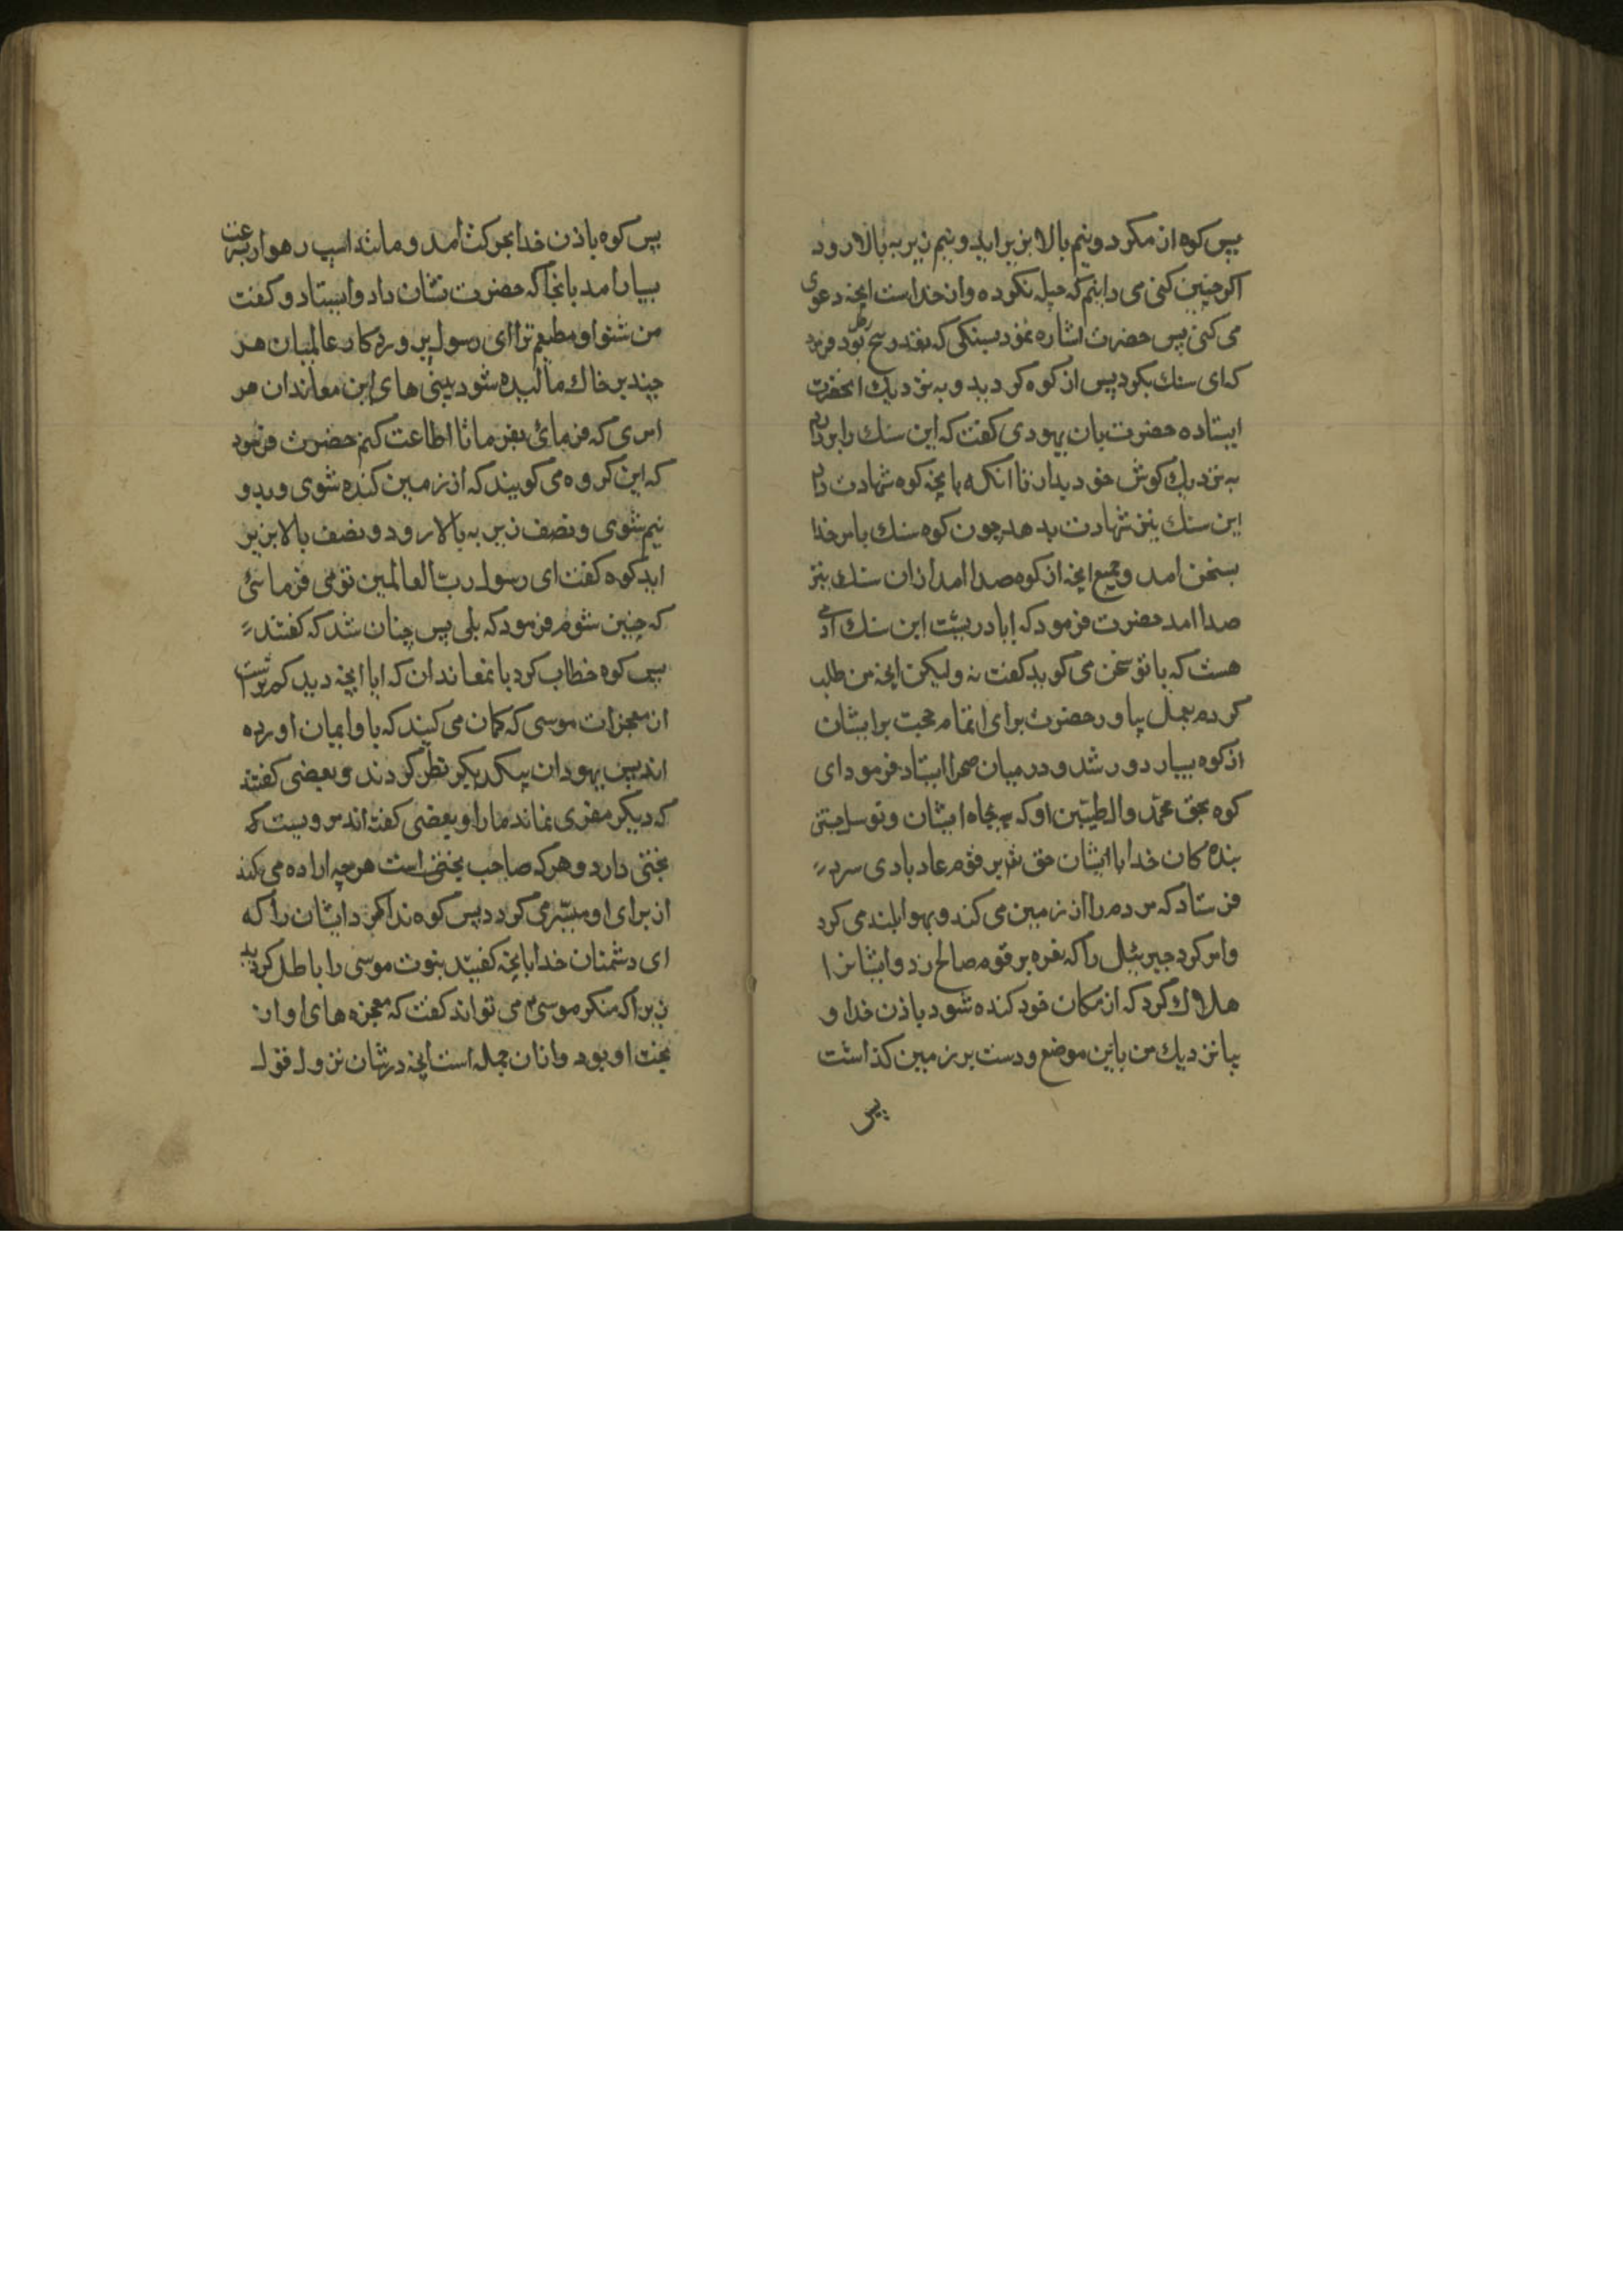 پس کوه از مکرد و نیم بالا بزیر اید و نیم زیر به بالا رود
اکر چنین کنی می دانیم که حیله نکرده و از خداست انچه دعوی
می کنی پس حضرت اشاره نمود بسنکی که بقدر پنج رطل بود فرمود
که ای سنک بکرد پس از کوه کردید و به نزدیک انحضرت
ایستاده حضرت بان یهودی کفت که این سنک را بردار
به نزدیک کوش خود بدار تا انکه بانچه کوه شهادت داد
این سنک نیز شهادت بدهد چون کوه سنک بامر خدا
بسخن امد و جمیع انچه از کوه صدا امد از ان سنک نیز
صدا امد حضرت فرمود که ایا در پشت این سنک ادمی
هست که با تو سخن می کوید کفت نه ولیکن انچه من طلب
کردم بعمل بیاور حضرت برای اتمام حجت بر ایشان
از کوه بسیار دور شد و در میان صحرا ایستاد فرمود ای
کوه بحق محمد و ال طیبین او که بجاه ایشان و توسل جستن
بنده کان خدا با ایشان حق تع بر قوم عاد بادی سرد
فرستاد که مردم را از زمین می کند و بهوا بلند می کرد
و امر کرد جبرئیل را که نعره بر قوم صالح زد و ایشانرا
هلاک کرد که از مکان خود کنده شود باذن خدا و
بیا نزدیک من باین موضع و دست بر زمین کذاشت
پس
پس کوه باذن خدا بحرکت امد و مانند اسب رهوار بسرعت
بسیار امد بانجا که حضرت نشان داد و ایستاد و کفت
من شنوا و مطیعم ترا ای رسول پروردکار عالمیان هر
چند بر خاک مالیده شود بینی های این معاندان هر
امری که فرمائی بفرما تا اطاعت کنم حضرت فرمود
که این کروه می کویند که از زمین کنده شوی و بدو
نیم شوی و نصف زیر به بالا رود و نصف بالا بزیر
اید کوه کفت ای رسول رب العالمین تو می فرمائی
که چنین شوم فرمود که بلی پس چنان شد که کفتند
پس کوه خطاب کرد بانمعاندان که ایا انچه دیدید کمتر است
از معجزات موسی که کمان می کنید که باو ایمان اورده
اید پس یهودان بیکدیکر نظر کردند و بعضی کفتند
که دیکر مفری نماند ما را و بعضی کفتند مردیست که
بختی دارد و هر که صاحب بختی است هر چه اراده می کند
از برای او میسر می کردد پس کوه ندا کرد ایشان را که
ای دشمنان خدا بانچه کفتید نبوت موسی را باطل کردید
زیرا که منکر موسی می تواند کفت که معجزه های او از
بخت او بود و از ان جمله است انچه در شان نزول قول